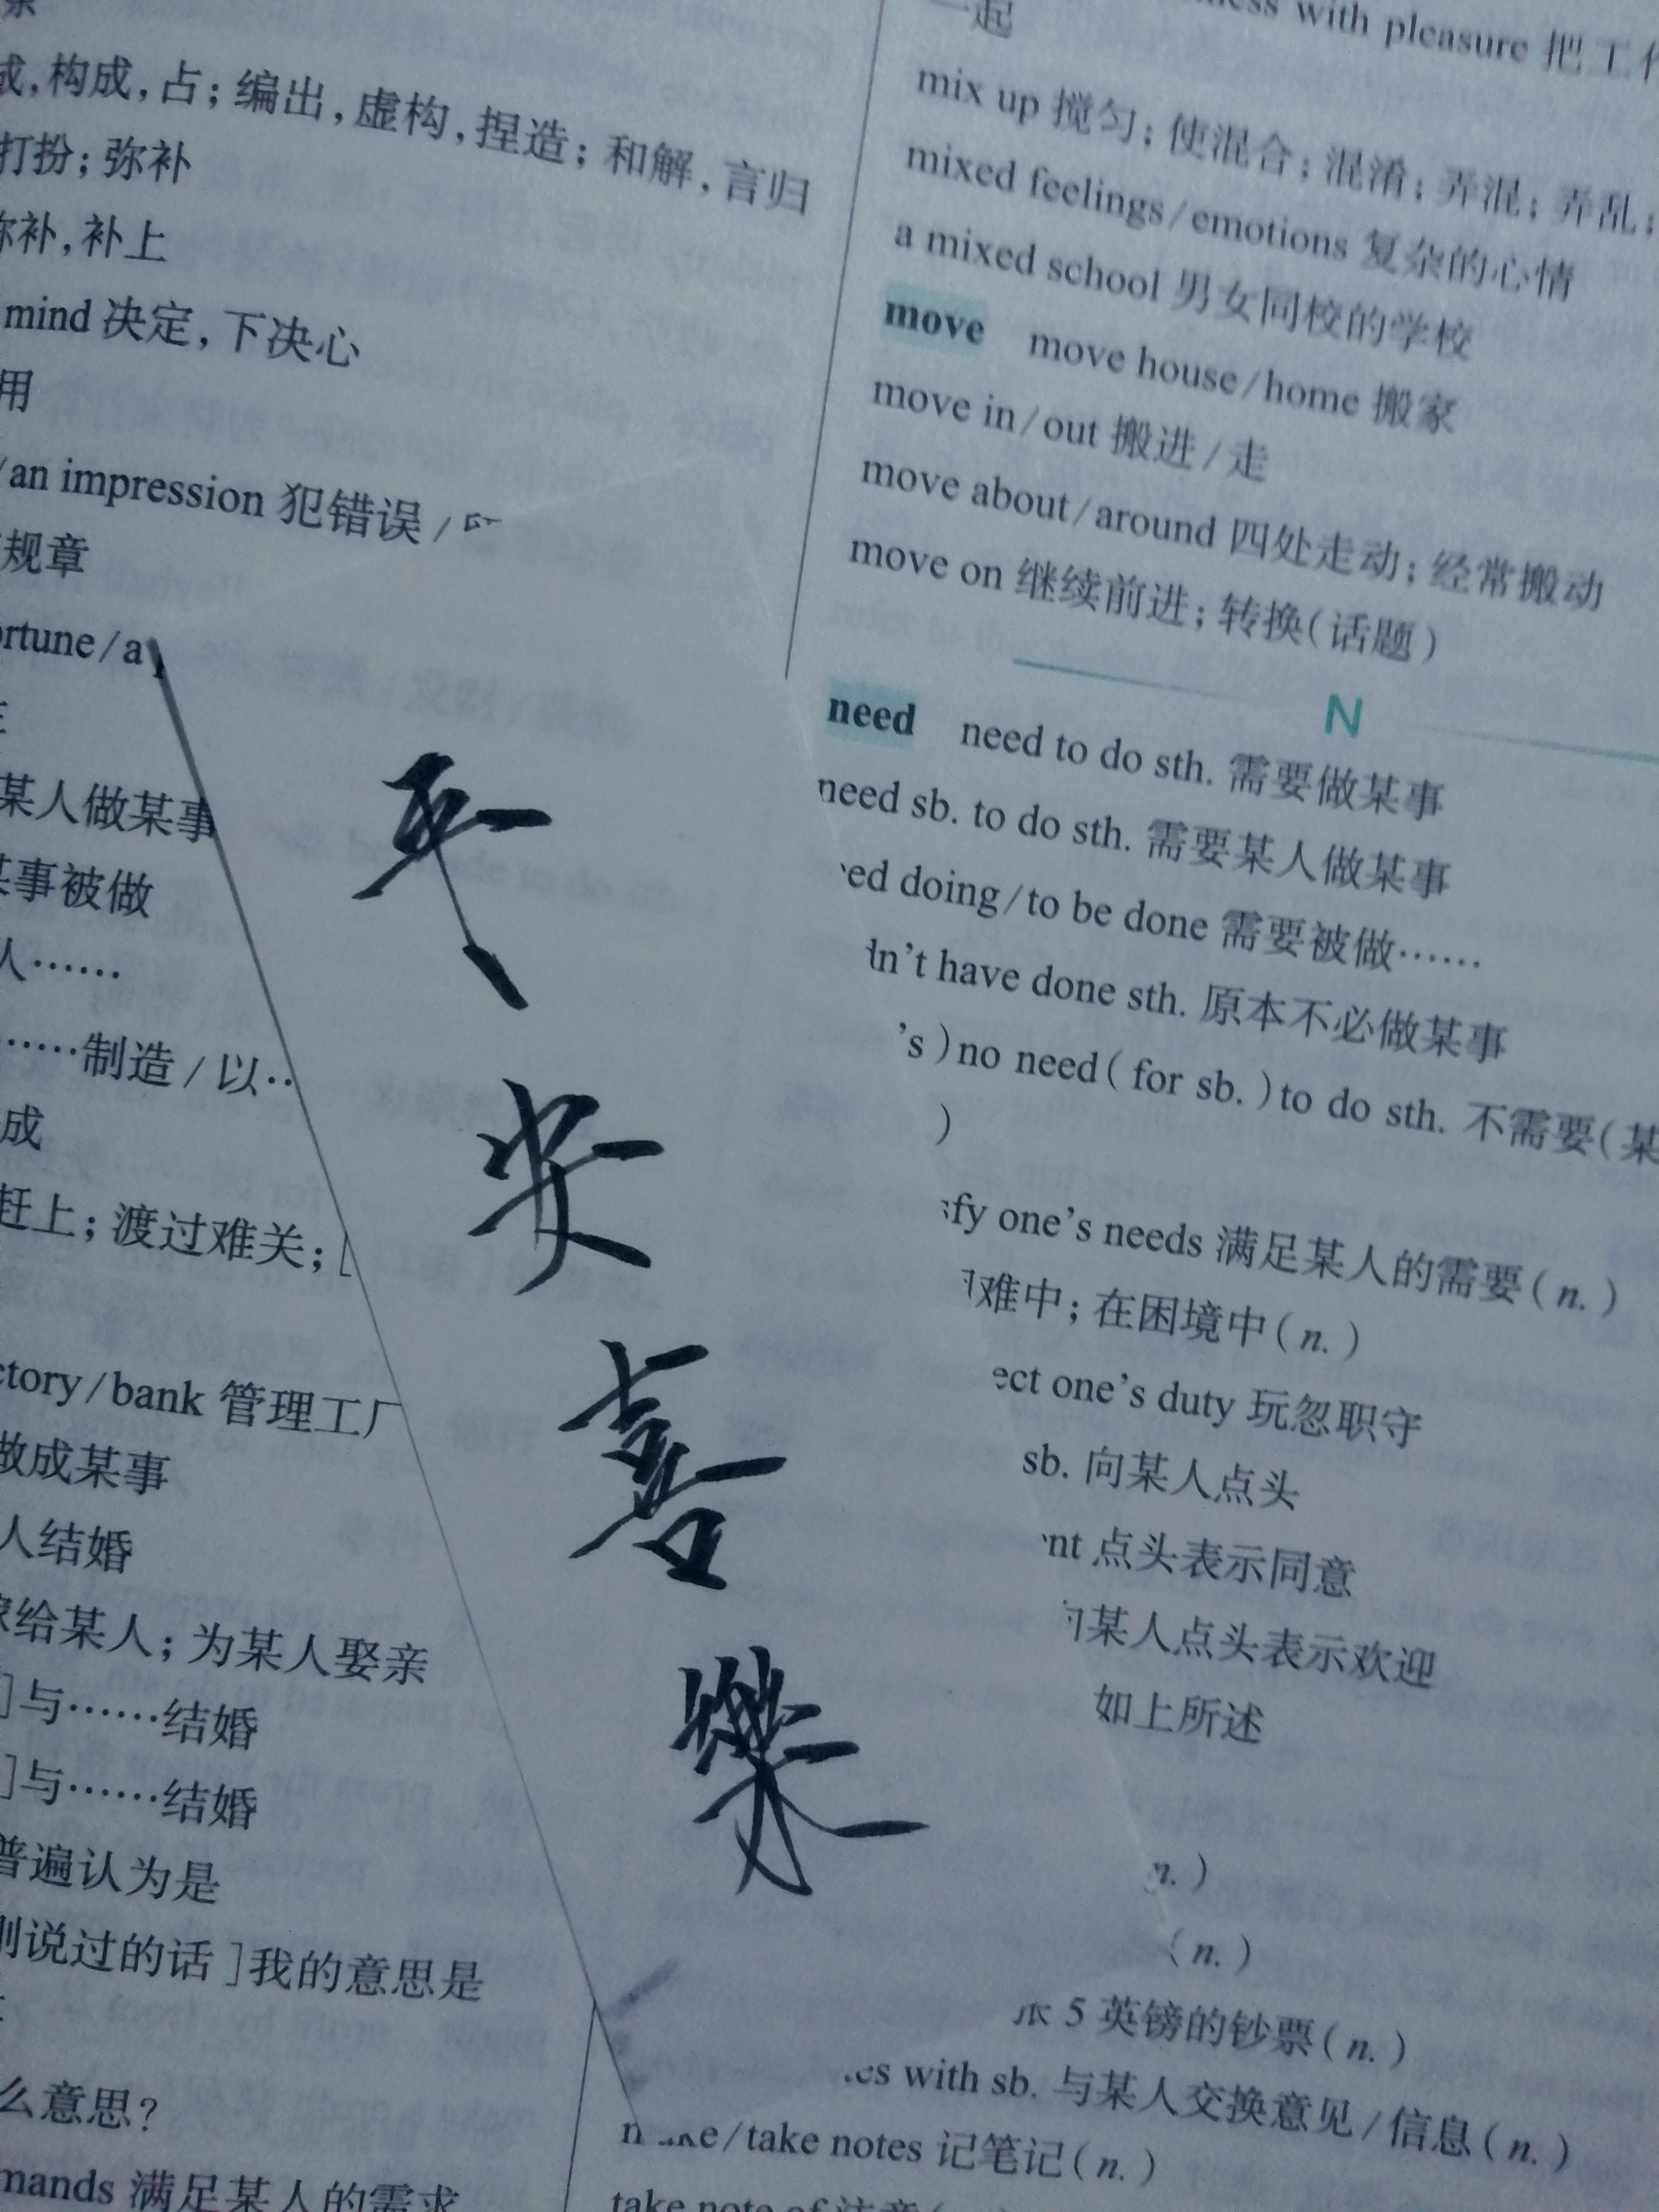 成,构成,占;编出,虚构,捏造;和解,言归
打扮;弥补
弥补,补上
mind 决定,下决心
用
/an impression 犯错误/
规章
ortune/a
某人做某事
某事被做
人……
……制造/以‥
成
赶上;渡过难关;[
ctory/bank 管理工厂
做成某事
人结婚
嫁给某人;为某人娶亲
]与……结婚
]与……结婚
普遍认为是
别说过的话]我的意思是
么意思?
mands 满足某人的需求
平
安
喜
樂
with pleasure 把工作
一起
mix up 搅匀;使混合;混淆;弄混;弄乱;
mixed feelings/emotions 复杂的心情
a mixed school 男女同校的学校
move move house/home 搬家
move in/out 搬进/走
move about/around 四处走动;经常搬动
move on 继续前进;转换(话题)
N
need need to do sth. 需要做某事
need sb. to do sth. 需要某人做某事
ed doing/to be done 需要被做……
dn't have done sth. 原本不必做某事
's)no need(for sb.)to do sth. 不需要(某
)
fy one's needs 满足某人的需要(n.)
难中;在困境中(n.)
ect one's duty 玩忽职守
sb. 向某人点头
nt 点头表示同意
向某人点头表示欢迎
如上所述
n.)
(n.)
张 5 英镑的钞票(n.)
es with sb. 与某人交换意见/信息(n.)
make/take notes 记笔记(n.)
take note of 注意